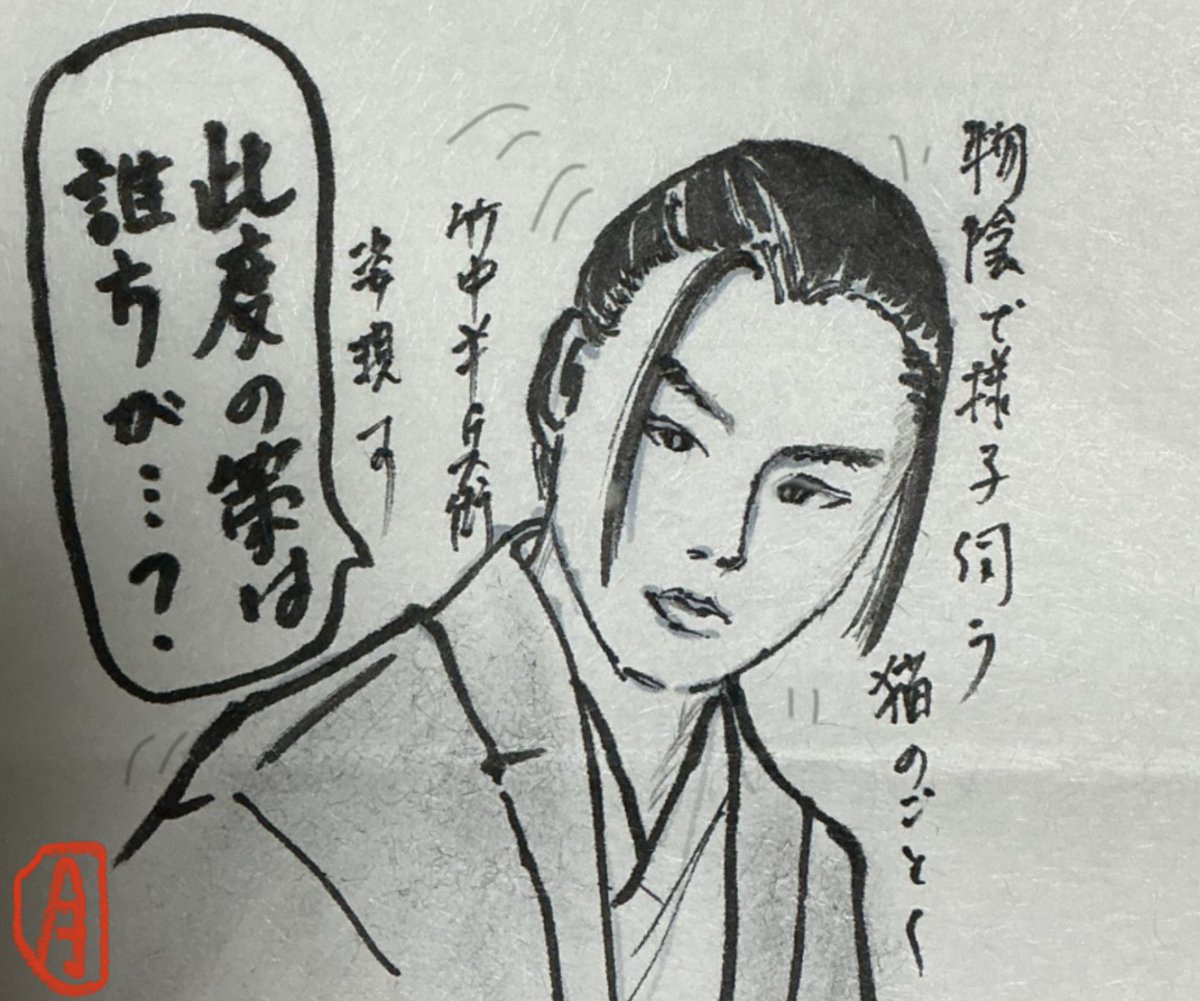 物陰で様子伺う
猫のごとく
竹中半兵衛
姿現す
此度の策は
誰方が…?